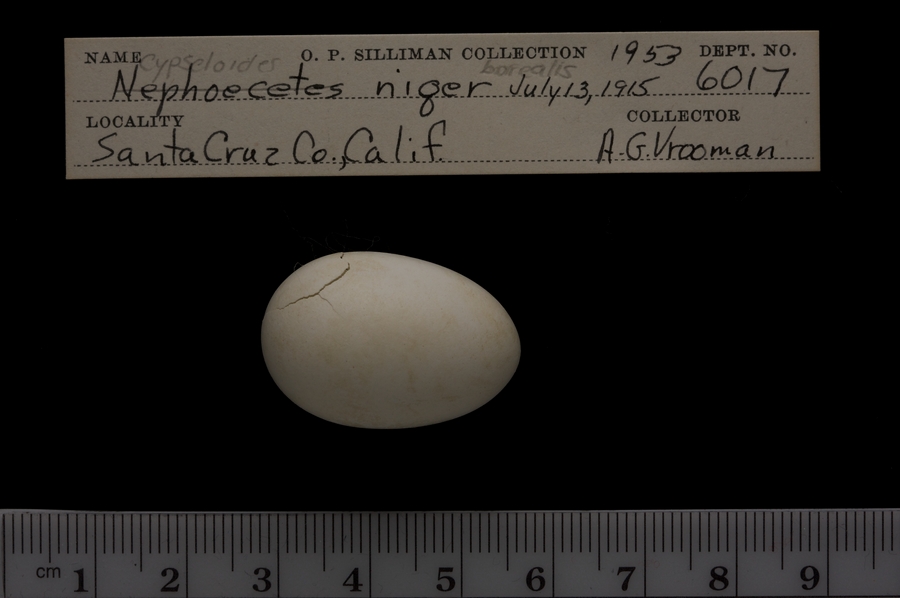 NAME Cypseloides O. P. SILLIMAN COLLECTION 1953 DEPT. NO.
Nephoecetes niger borealis July 13, 1915 6017
LOCALITY COLLECTOR
Santa Cruz Co., Calif. A.G. Vrooman
cm 1 2 3 4 5 6 7 8 9